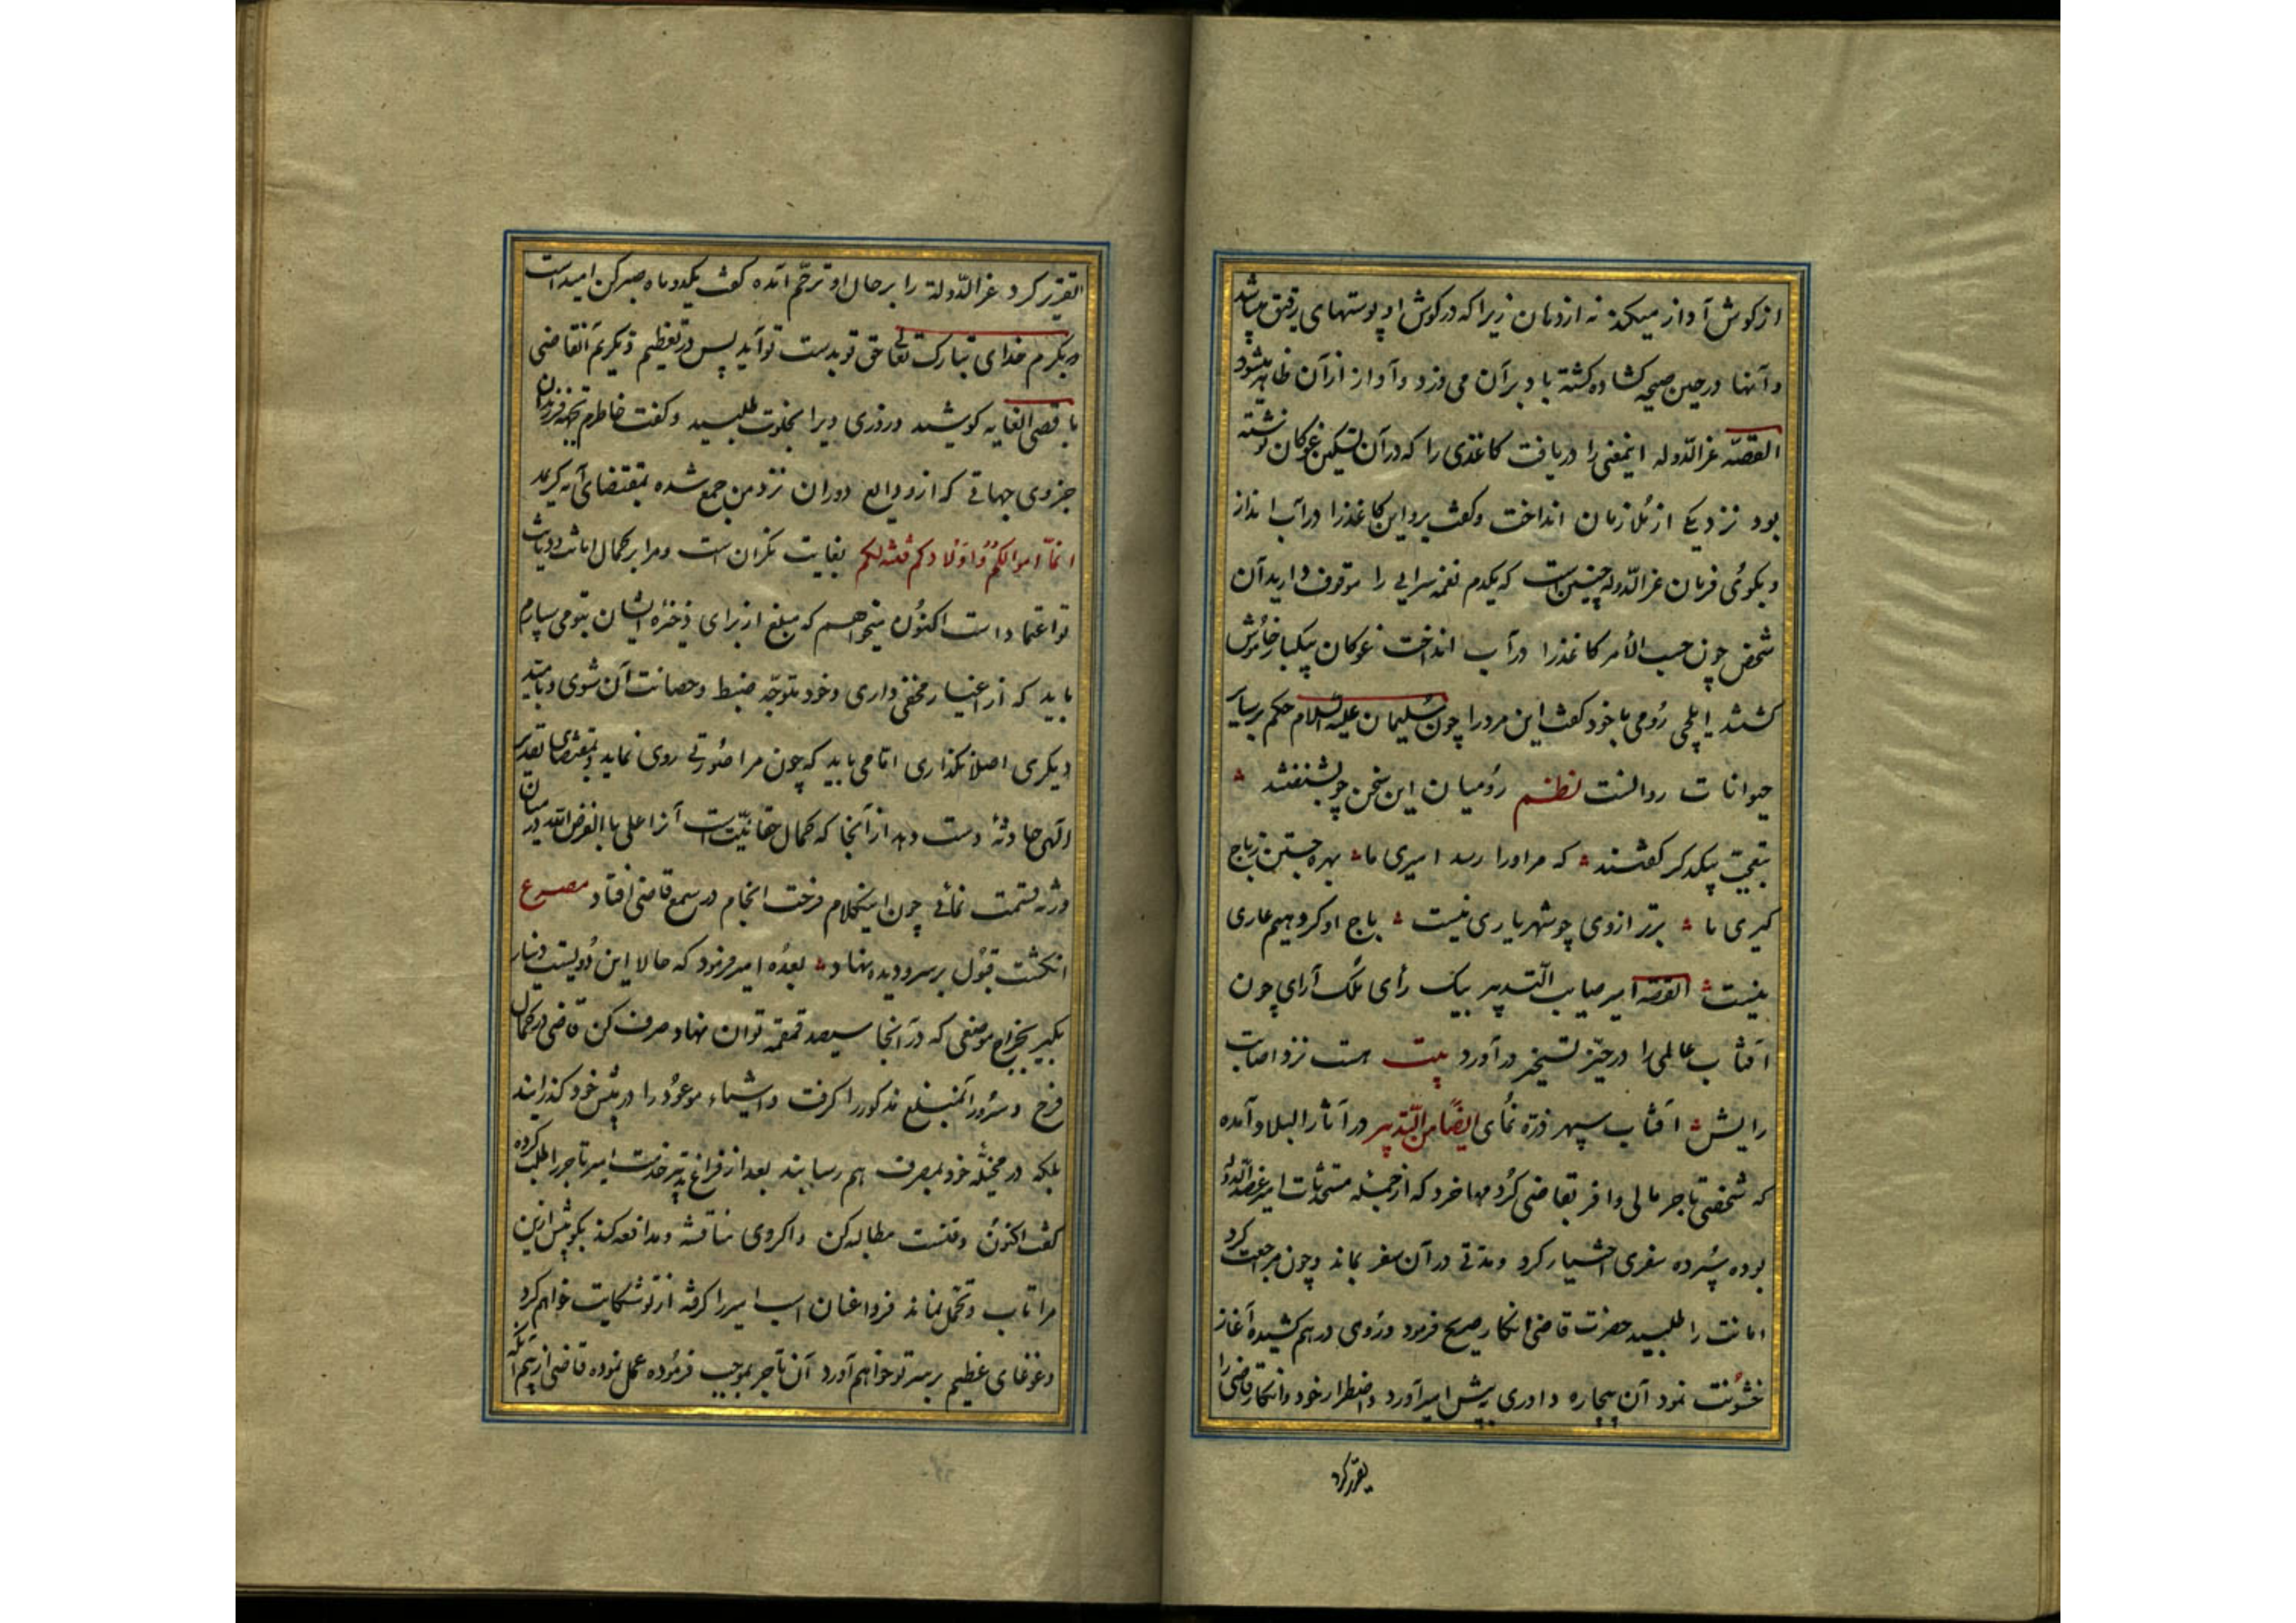 از کوش آواز میکند نه از دهان زیرا که در کوش او پوستهای رقیق میباشد
و آنها در حین صیحه کشاده کشته باد بر آن می وزد و آواز از آن ظاهر میشود
القصّه عزالدّوله اینمعنی را دریافت کاغذی را که در آن تسکین غوکان نوشته
بود نزد یکی از ملازمان انداخت و کفت برو این کاغذرا در آب انداز
و بکوی فرمان عزالدّوله چنین است که یکدم نغمه سرایی را موقوف دارید آن
شخص چون حسب الأمر کاغذرا در آب انداخت غوکان بیکبار خاموش
کشتند ایلچی رومی با خود کفت این مرد را چون سلیمان علیه السلام حکم بر سایر
حیوانات روانست نظم رومیان این سخن چو بشنفتند
بتعجّب بیکدکر کفتند که مر اورا رسد امیری ما بهره جستن ز باج
کیری ما برتر ازوی چو شهریاری نیست باج او کر دهیم عاری
نیست القصّه امیر صایب التدبیر بیک رأی ملک آرای چون
آفتاب عالمی را در حیّز تسخیر در آورد بیت هست نزد اصابت
رایش آفتاب سپهر ذرّه نمای ایضًا من التّدبیر در آثار البلاد آمده
که شخصی تاجر مالی وافر بقاضی کرد مهاخرد که از جمله مستحدثات امیر عضدالدّوله
بوده سپرده سفری اختیار کرد و مدتی در آن سفر بماند و چون مراجعت کرد
امانت را طلبید حضرت قاضی انکار صریح فرمود و روی در هم کشیده آغاز
خشونت نمود آن بیچاره داوری پیش امیر آورد و اضطرار خود و انکار قاضی را
تقریر کرد
تقریر کرد عزالدّولة را بر حال او ترحّم آمده کفت یکدو ماه صبر کن امید است
که بکرم خدای تبارک تعالی حق تو بدست تو آید پس در تعظیم و تکریم آنقاضی
با قصی الغایه کوشید و روزی ویرا بخلوت طلبید و کفت خاطرم بجهة فرزندان
جزوی جهاتی که از ودایع دوران نزد من جمع شده بمقتضای آیه کریمه
انّما اموالکم و اولادکم فتنه لکم بغایت نکران است و مرا بر کمال امانت و دیانت
تو اعتماد است اکنون میخواهم که مبلغ از برای ذخیره ایشان بتو می سپارم
باید که از اغیار مخفی داری و خود متوجّه ضبط و حصانت آن شوی و باید
دیکری اصلا نکذاری امّا می باید که چون مرا صورتی روی نماید و بمقتضای تقدیر
الهی حادثهٔ دست دهد از آنجا که کمال حقانیّت است آنرا علی ما الفرض الله در میان
ورثه قسمت نمائی چون اینکلام فرخت انجام در سمع قاضی افتاد مصرع
انکشت قبول بر سر و دیده نهاد بعده امیر فرمود که حالا این دویست دینار
بکیر بخرج موضعی که در آنجا سیصد قمقمه توان نهاد صرف کن قاضی در کمال
فرح و سرور آنمبلغ مذکوررا کرفت و اشیاء موعود را در پیش خود کذرانید
بلکه در مخیّله خود بمصرف هم رسانید بعد از فراغ امیر تاجر را طلب کرده
کفت اکنون وقتست مطالبه کن و اکر وی مناقشه و مدافعه کند بکو پیش ازین
مرا تاب و تحمّل نماند فردا عنان اسب امیررا کرفته از تو شکایت خواهم کرد
و غوغای عظیم بر سر تو خواهم آورد آن تاجر بموجب فرموده عمل نموده قاضی از بیم آنکه